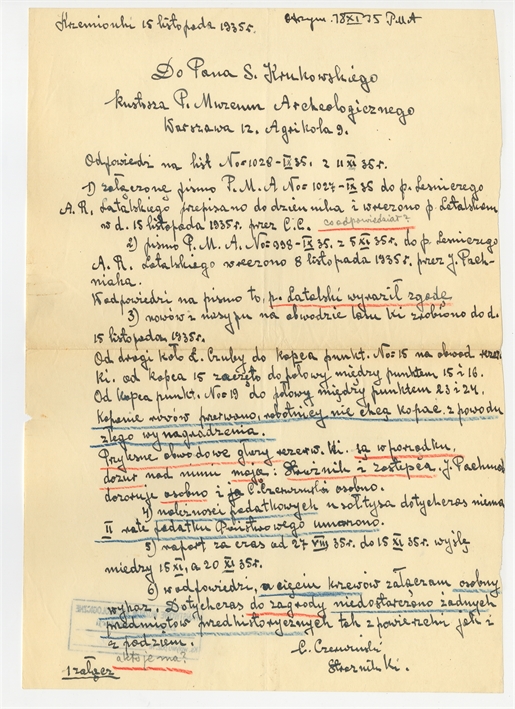 Krzemionki 15 listopada 1935r.
Otrzym. 18 XI 35 P.M.A
Do Pana S. Krukowskiego
kustosza P. Muzeum Archeologicznego
Warszawa 12. Agrikola 9.
Odpowiedzi na list No= 1028-IX 35. z 11 XI 35r.
1) załączone pismo P.M.A No= 1027-IX 35 do p. Lesniczego
A. R. Łatalskiego przepisano do dziennika i wręczono p. Łatalskiem
w d. 15 listopada 1935r. przez C.C. co odpowiedział?
2) pismo P.M.A. No= 998-IX 35. z 5 XI 35r. do p. Lesniczego
A. R. Łatalskiego wręczono 8 listopada 1935r. przez J. Pach-
niaka.
W odpowiedzi na pismo to, p. Łatalski wyraził zgodę
3) rowów i nasypu na obwodzie lasu ki zrobiono do d.
15 listopada 1935r.
Od drogi koło L. Czuby do kopca punkt. No= 15 na obwod rezer.
ki. od kopca 15 zaczęto do połowy między punktem 15 i 16.
Od kopca punkt. No= 19 do połowy między punktem 23 i 24.
Kopanie rowów przerwano, robotnicy nie chcą kopac z powodu
złego wynagrodzenia.
obwodowe rezerw. ki. są w porządku,
dozur nad nimi mają: Strużnik i zastępca. J. Pachniak
dozoruje osobno i C. Czerwinski osobno.
4) należnosci podatkowych u sołtysa dotychczas niema
II ratę podatku Państwowego umorono.
5) raport za czas od 27 VIII 35r. do 15 XI 35r. wyślę
między 15 XI, a 20 XI 35r.
6) w odpowiedzi, o cięciu krzewów załączam osobny
wykaz. Dotychczas do zagrody niedostarczono żadnych
przedmiotów przedhistorycznych tak z powierzchni jak i
z podziem. C. Czerwinski
a ktoje ma? Strażnik Ki.
1 załącz